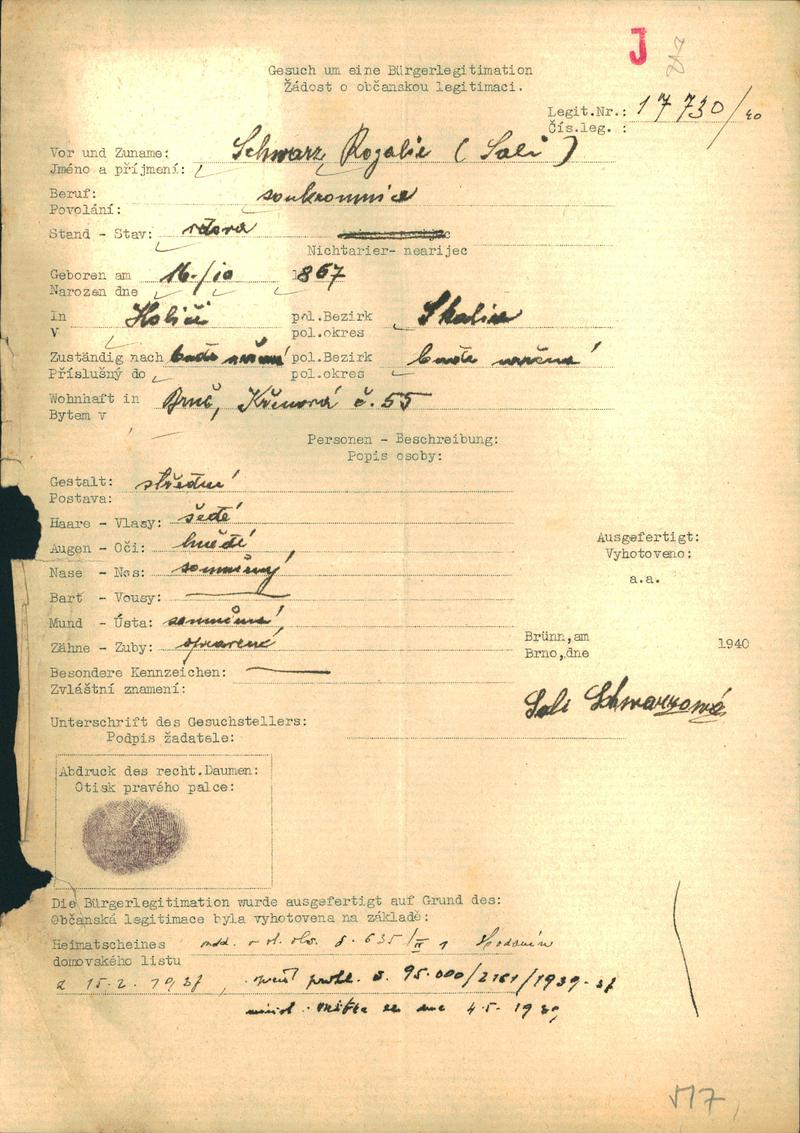 J
Gesuch um eine Bürgerlegitimation
Žádost o občanskou legitimaci.
Legit.Nr.: 17730/40
Čís.leg. :
Vor und Zuname: Schwarz Rozalie (Sali)
Jméno a příjmení:
Beruf: soukromnice
Povolání:
Stand - Stav: vdova
Nichtarier- nearijec
Geboren am 16./10 1867
Narozen dne
In Holíči pol.Bezirk Skalica
V pol.okres
Zuständig nach bude určena pol.Bezirk bude určena
Příslušný do pol.okres
Wohnhaft in Brně, Křenová č.55
Bytem v
Personen - Beschreibung:
Popis osoby:
Gestalt: střední
Postava:
Haare - Vlasy: šedé
Augen - Oči: hnědé
Nase - Nos: souměrný
Bart - Vousy:
Mund - Ústa: souměrná
Zähne - Zuby: spravené
Besondere Kennzeichen:
Zvláštní znamení:
Ausgefertigt:
Vyhotoveno:
a.a.
Brünn,am
Brno,dne 1940
Sali Schwarzová
Unterschrift des Gesuchstellers:
Podpis žadatele:
Abdruck des recht.Daumen:
Otisk pravého palce:
Die Bürgerlegitimation wurde ausgefertigt auf Grund des:
Občanská legitimace byla vyhotovena na základě:
Heimatscheines č. 635/II Hodonín
domovského listu
z 15.2.1937, č. 95.000/2161/1939-
4.5.1939
517